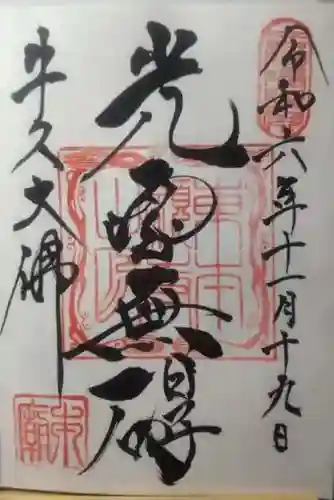 令和六年十一月十九日
光雲無碍
牛久大佛